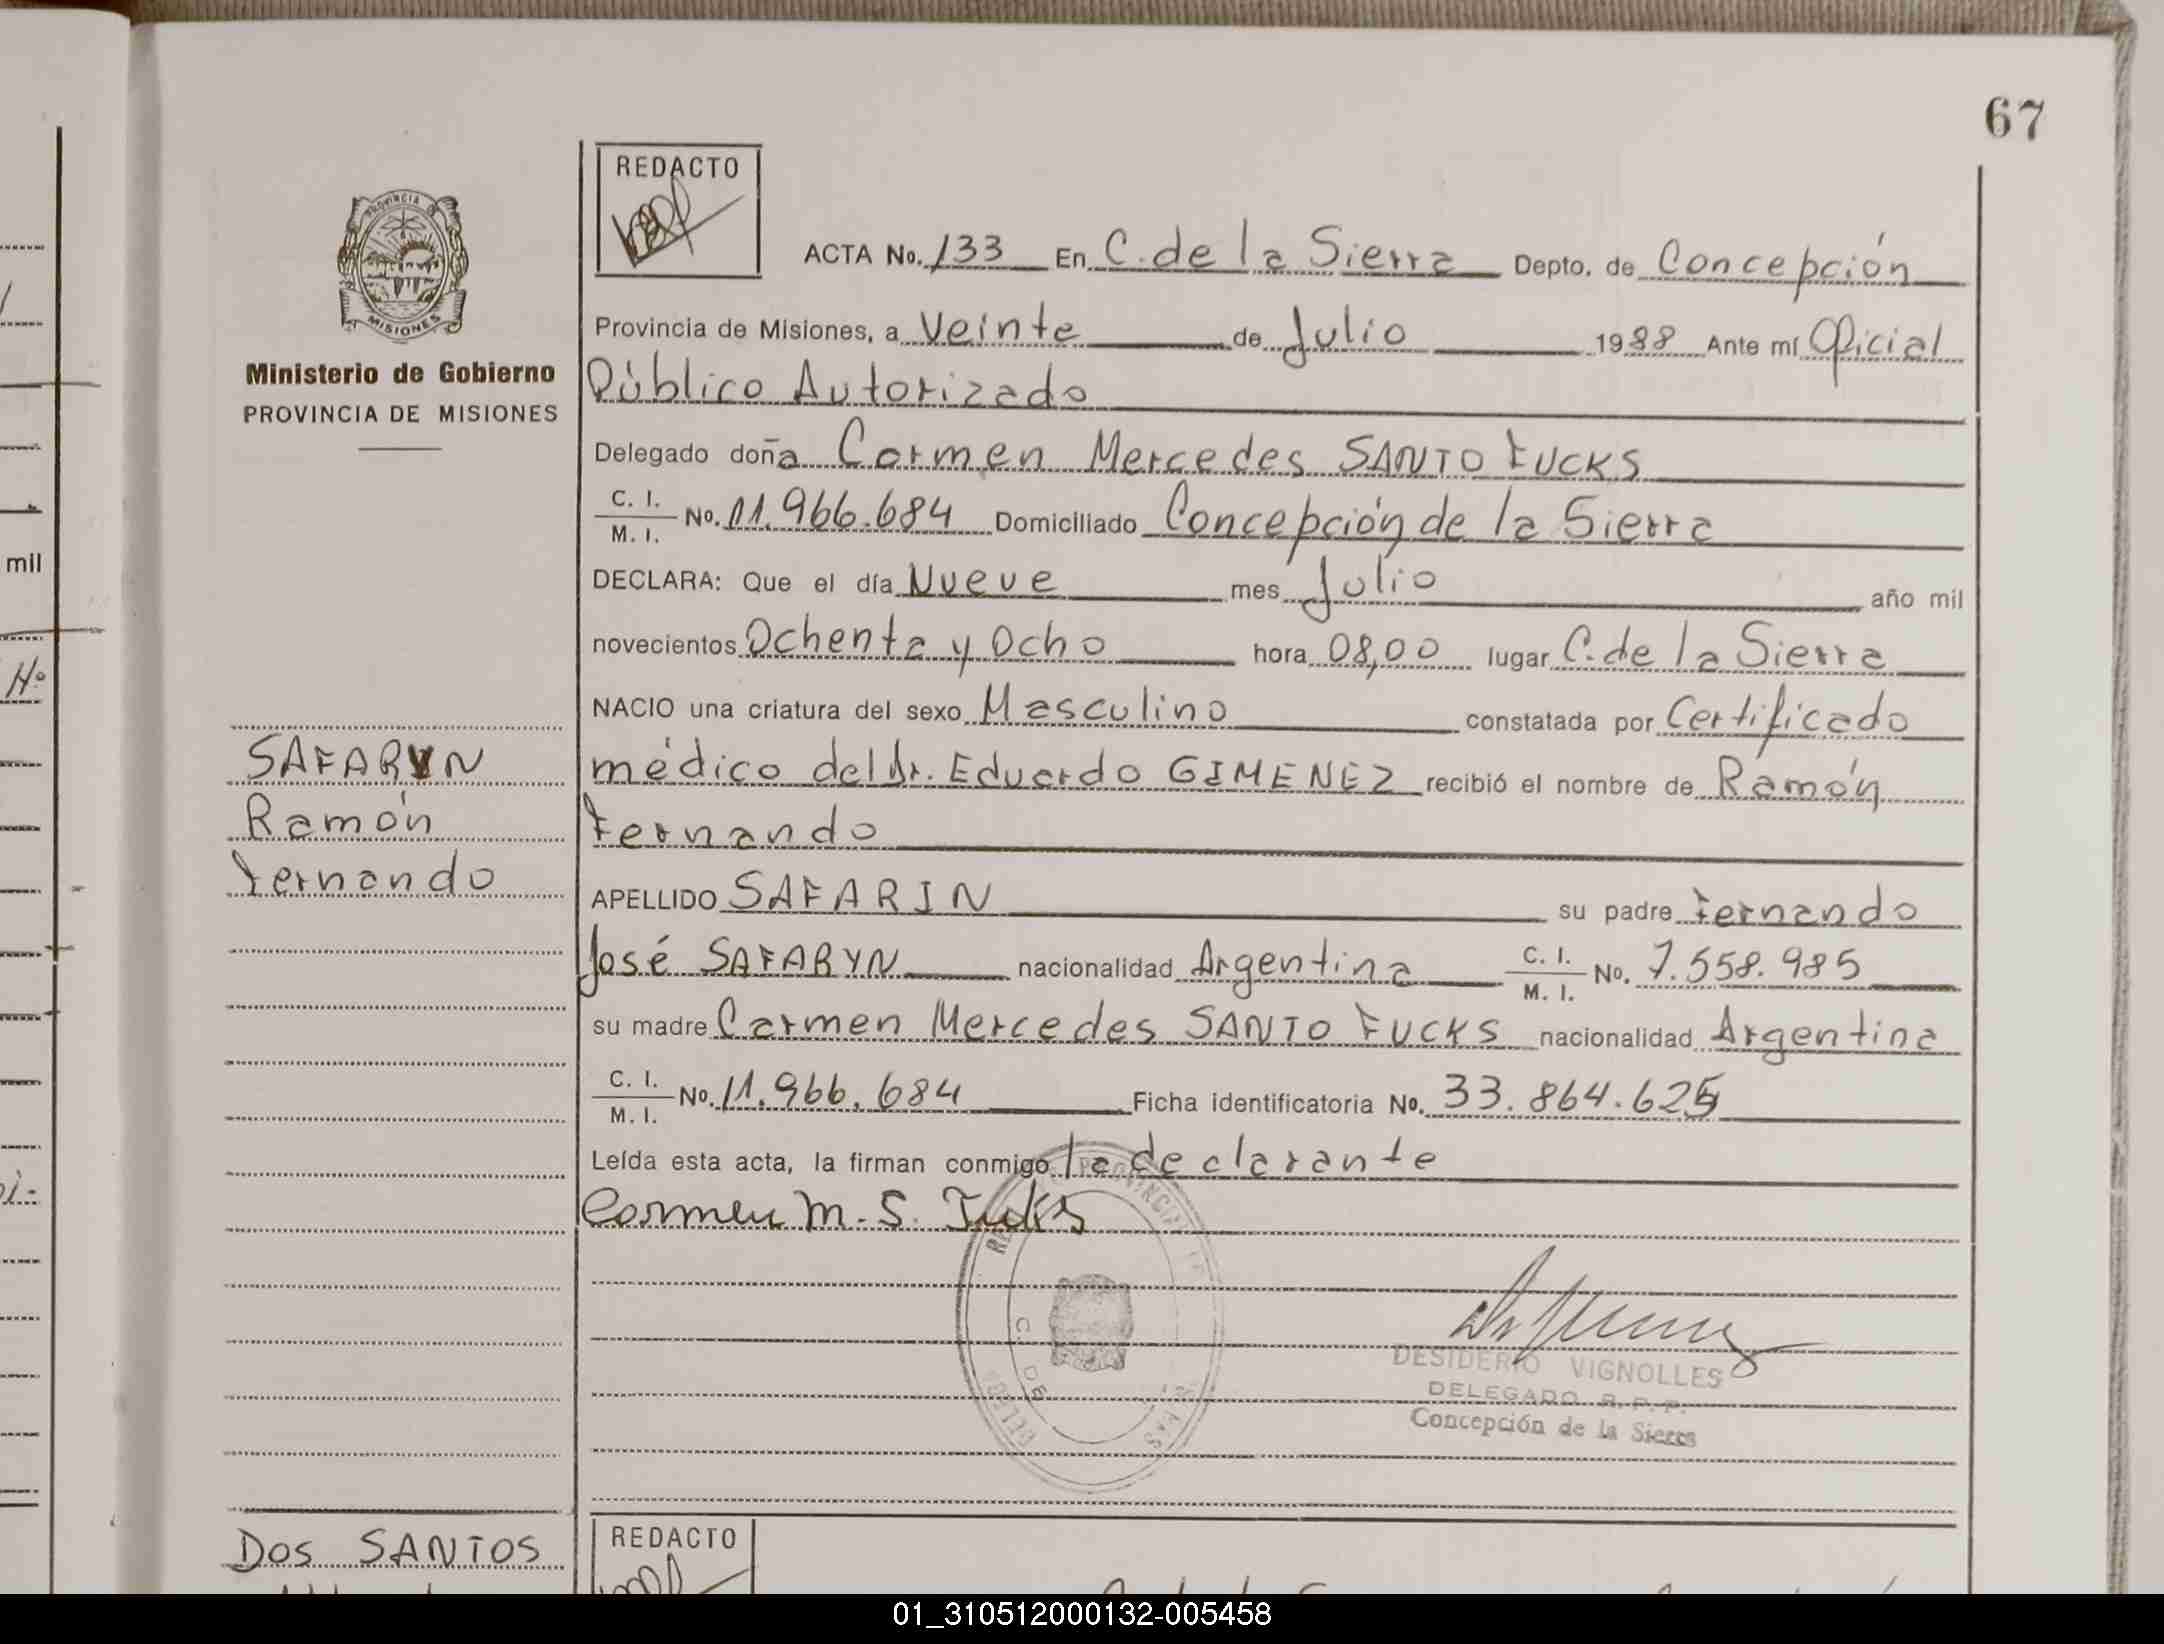 67
REDACTO
PROVINCIA DE
MISIONES
Ministerio de Gobierno
PROVINCIA DE MISIONES
ACTA No. 133 En C. de la Sierra Depto. de Concepción
Provincia de Misiones, a Veinte de Julio 1988 Ante mí Oficial
Público Autorizado
Delegado doña Carmen Mercedes SANTO FUCKS
C. I.
M. I. No. 11.966.684 Domiciliado Concepción de la Sierra
DECLARA: Que el día Nueve mes Julio año mil
novecientos Ochenta y Ocho hora 08,00 lugar C. de la Sierra
NACIO una criatura del sexo Masculino constatada por Certificado
médico del Dr. Eduardo GIMENEZ recibió el nombre de Ramón
Fernando
APELLIDO SAFARIN su padre Fernando
José SAFARYN nacionalidad Argentina C. I.
M. I. No. 7.558.985
su madre Carmen Mercedes SANTO FUCKS nacionalidad Argentina
C. I.
M. I. No. 11.966.684 Ficha identificatoria No. 33.864.625
Leída esta acta, la firman conmigo la declarante
Carmen M. S. Fuks
SAFARYN
Ramón
Fernando
C. DE
DESIDERIO VIGNOLLES
DELEGADO R. P. P.
Concepción de la Sierra
mil
Nº
DOS SANTOS
REDACTO
01_310512000132-005458